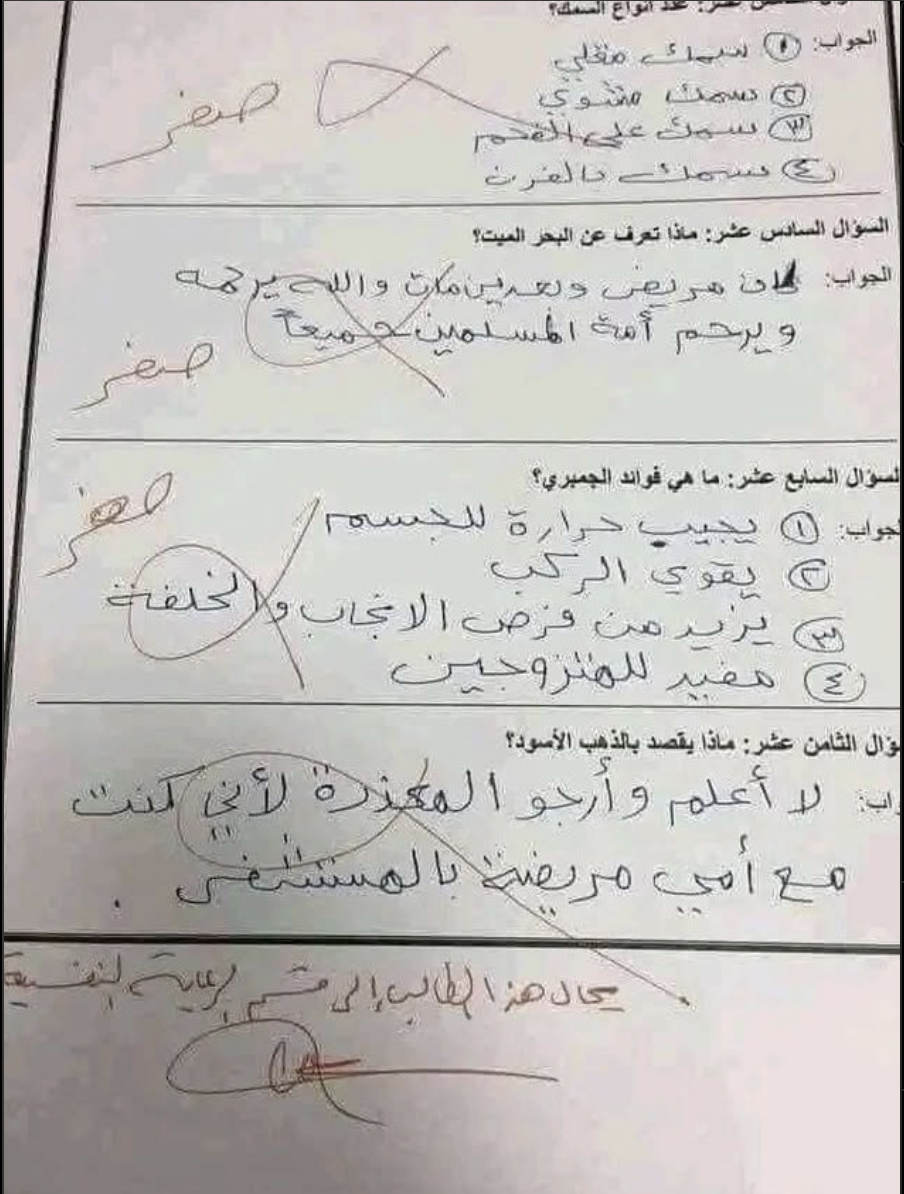 عشر: عدد أنواع السمك؟
الجواب: ١ سمك مقلي
٢ سمك مشوي
٣ سمك على الفحم
٤ سمك بالفرن
صفر
السؤال السادس عشر: ماذا تعرف عن البحر الميت؟
الجواب: كان مريض وبعدين مات والله يرحمه
ويرحم أمة المسلمين جميعاً
صفر
السؤال السابع عشر: ما هي فوائد الجمبري؟
الجواب: ١ يجيب حرارة للجسم
٢ يقوي الركب
٣ يزيد من فرص الانجاب والخلفة
٤ مفيد للمتزوجين
صفر
سؤال الثامن عشر: ماذا يقصد بالذهب الأسود؟
لا أعلم وأرجو المعذرة لأني كنت
مع أمي مريضة بالمستشفى .
يحال هذا الطالب إلى قسم الرعاية النفسية